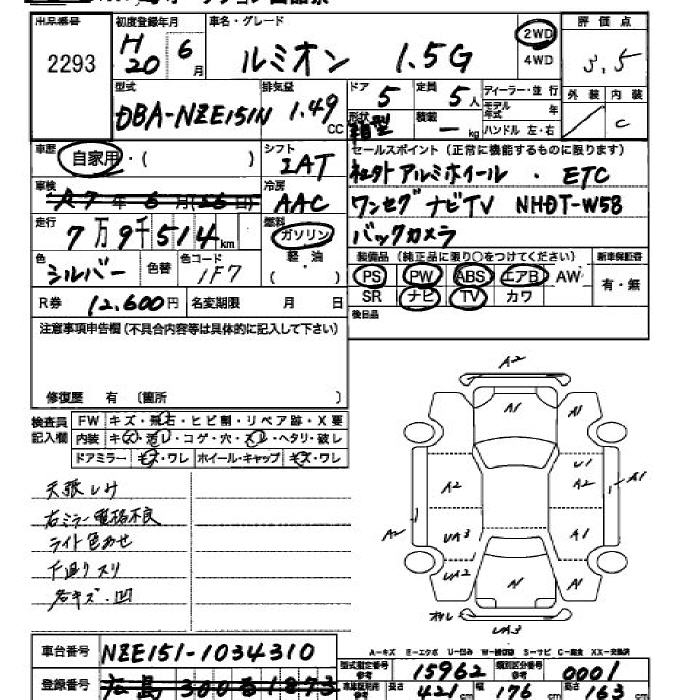 出品番号 2293
初度登録年月 H20 6月
車名・グレード ルミオン 1.5G
2WD 4WD
評価点 3.5
型式 DBA-NZE151N
排気量 1.49 CC
ドア 5
定員 5人
形状 箱型
積載 — kg
ディーラー・並行
モデル年式 年
ハンドル 左・右
外装
内装 C
車歴 自家用・( )
シフト IAT
セールスポイント(正常に機能するものに限ります)
社外アルミホイール . ETC
車検 R7年6月(26日)
冷房 AAC
ワンセグナビTV NHDT-W58
走行 7万9千514km
燃料 ガソリン 軽油 ( )
バックカメラ
色 シルバー 色替 色コード 1F7
装備品(純正品に限り○をつけてください)
PS PW ABS エアB AW
SR ナビ TV カワ
新車保証書 有・無
R券 12,600円 名変期限 月 日
後日品
注意事項申告欄(不具合内容等は具体的に記入して下さい)
修復歴 有 〔箇所 〕
検査員記入欄
FW キズ・飛石・ヒビ割・リペア跡・X要
内装 キズ・汚レ・コゲ・穴・スレ・ヘタリ・破レ
ドアミラー キズ・ワレ ホイール・キャップ キズ・ワレ
天張しけ
右ミラー電格不良
ライト色あせ
下廻りスリ
各キズ・凹
A2
A1
A1 A1
U1
A2 A2 A1
A2 UA3 A1
UA2 A1 A1
UA3
A-キズ E-エクボ U-凹み W-補修跡 S-サビ C-腐食 XX-交換済
車台番号 NZE151-1034310
型式指定番号 参考 15962 類別区分番号 参考 0001
登録番号 広島 300 る 1873
長さ 421cm 幅 176cm 高さ 163cm